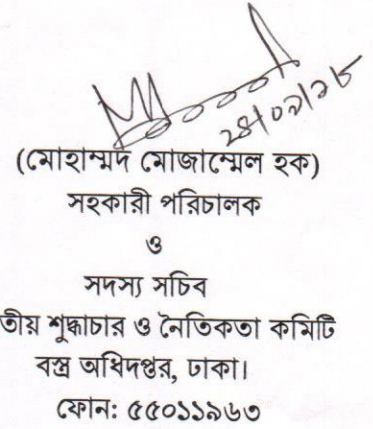 (মোহাম্মদ মোজাম্মেল হক)
সহকারী পরিচালক
ও
সদস্য সচিব
তীয় শুদ্ধাচার ও নৈতিকতা কমিটি
বস্ত্র অধিদপ্তর, ঢাকা।
ফোন: ৫৫০১১৯৬৩